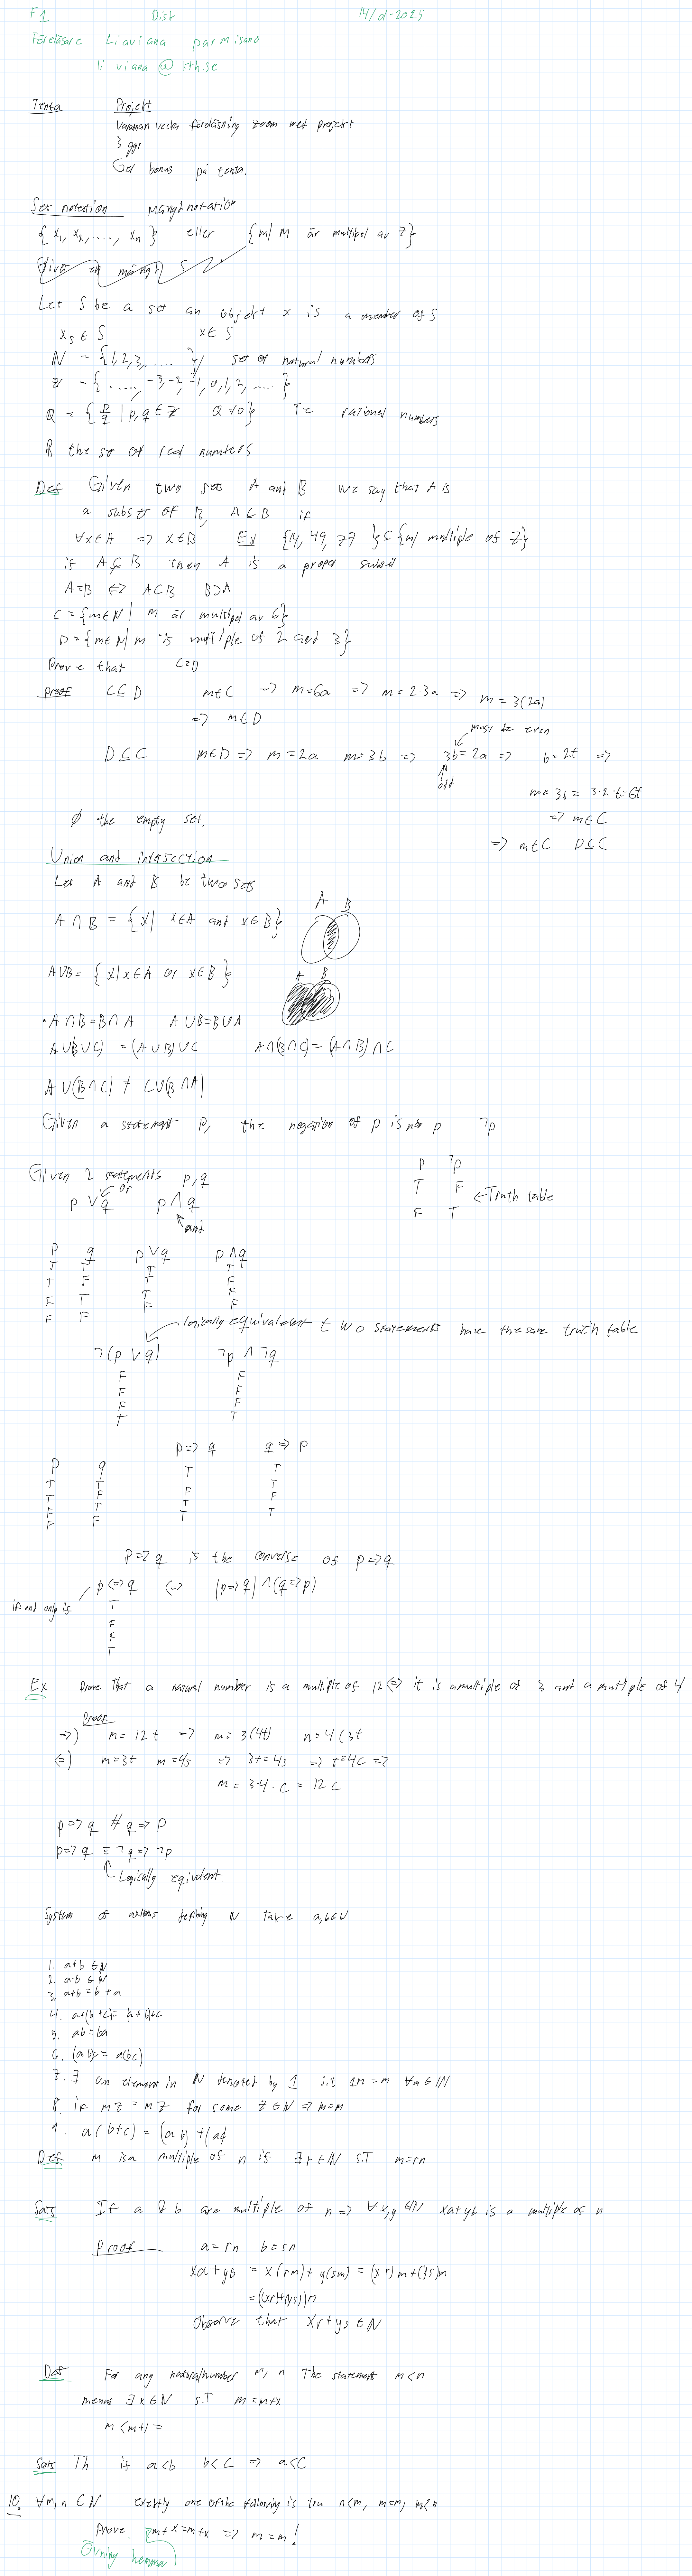 F1 Disk 14/01-2025
Föreläsare Liaviana parmisano
liviana @ kth.se
Tenta Projekt
Varannan vecka föreläsning zoom met projekt
3 ggr
Ger bonus på tenta.
Set notation Mängdnotation
{x₁, x₂, ...., xₙ} eller {m| m är multipel av 7}
Let S be a set an objekt x is a member of S
x₅ ∈ S x ∈ S
N = {1,2,3,.....} set of natural numbers
Z = {....., -3,-2,-1,0,1,2,.....}
Q = {p/q | p,q ∈ Z Q≠0} Te rational numbers
R the set of real numbers
Def Given two sets A and B we say that A is
a subset of B, A⊂B if
∀x∈A => x∈B Ex {14, 49, 77} ⊆ {m/ multiple of 7}
if A⊊B then A is a proper subset
A=B <=> A⊂B B⊃A
C = {m∈N | m är multipel av 6}
D = {m∈N | m is multiple of 2 and 3}
Prove that C=D
proof C⊆D m∈C => m=6a => m=2·3a => m=3(2a)
=> m∈D
must be even
D⊆C m∈D => m=2a m=3b => 3b=2a => b=2t =>
odd
m=3b=3·2·t=6t
=> m∈C
=> m∈C D⊆C
∅ the empty set.
Union and intersection
Let A and B be two sets
A∩B = {x| x∈A and x∈B} A B
A∪B = {x|x∈A or x∈B} A B
· A∩B=B∩A A∪B=B∪A
A∪(B∪C) = (A∪B)∪C A∩(B∩C) = (A∩B)∩C
A∪(B∩C) ≠ C∪(B∩A)
Given a statement p, the negation of p is not p ¬p
Given 2 statements p,q
p ∨ q or p ∧ q and
p ¬p
T F <- Truth table
F T
p q p∨q p∧q
T T T T
T F T F
F T T F
F F F F
logically equivalent two statements have the same truth table
¬(p∨q) ¬p∧¬q
F F
F F
F F
T T
p=>q q=>p
p q
T T T T
T F F T
F T T F
F F T T
p=>q is the converse of p=>q
if and only if p<=>q <=> (p=>q)∧(q=>p)
T
F
F
T
Ex Prove that a natural number is a multiple of 12 <=> it is a multiple of 3 and a multiple of 4
Proof
=>) m=12t -> m=3(4t) n=4(3t
<=) m=3t m=4s => 3t=4s => t=4c =>
m=3·4·c=12c
p=>q ≢ q=>p
p=>q ≡ ¬q=>¬p
Logically eqivalent.
System of axioms defining N Take a,b∈N
1. a+b ∈N
2. a·b ∈N
3. a+b=b+a
4. a+(b+c)=(a+b)+c
5. ab=ba
6. (ab)c=a(bc)
7. ∃ an element in N denoted by 1 s.t 1m=m ∀m∈N
8. if mz=mz for some z∈N => m=m
9. a(b+c) = (ab)+(ac
Def m is a multiple of n if ∃r∈N s.T m=rn
Sats If a & b are multiple of n => ∀x,y∈N xa+yb is a multiple of n
Proof a=rn b=sn
xa+yb = x(rm)+y(sm) = (xr)m+(ys)m
=((xr)+(ys))m
Observe that xr+ys∈N
Def For any natural number m,n The statement m<n
means ∃x∈N s.T m=m+x
m<m+1=
Sats Th if a<b b<c => a<c
10. ∀m,n∈N exactly one of the following is tru n<m, m=m, m<n
Prove m+x=m+x => m=m!
Övning hemma